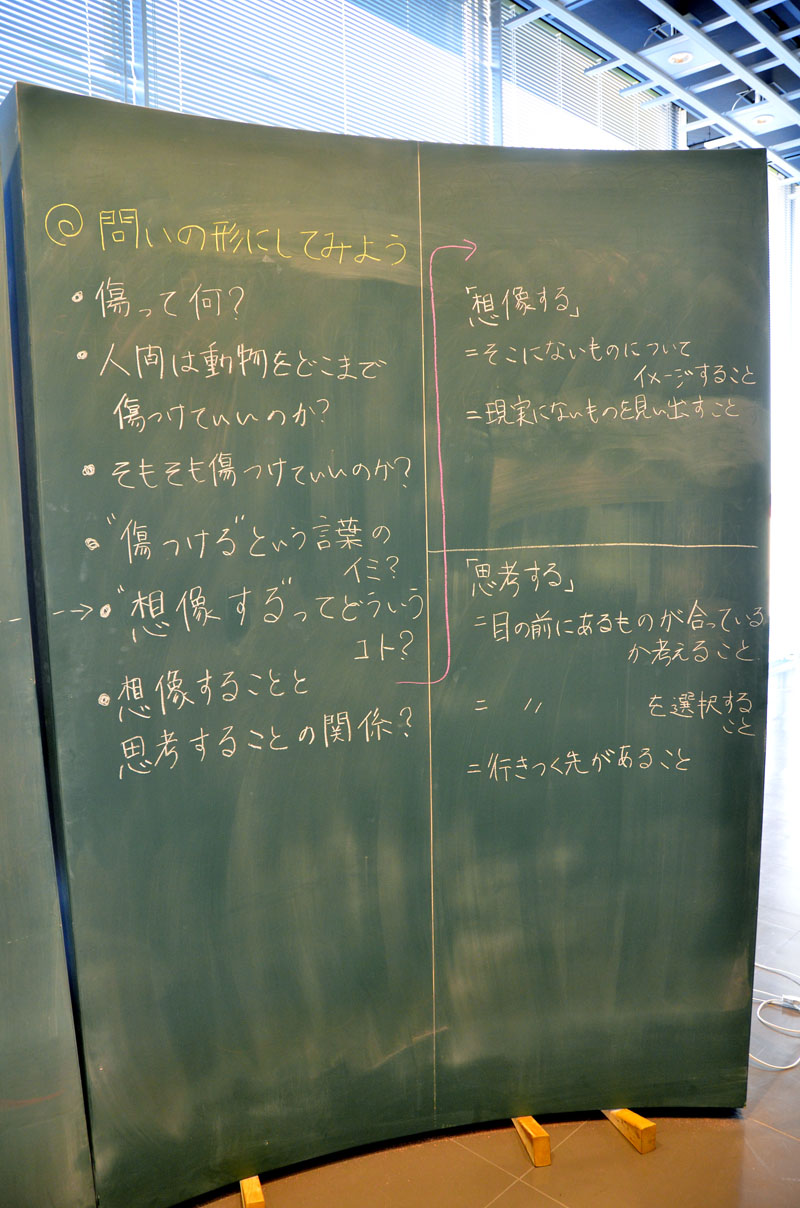 ◎ 問いの形にしてみよう
・傷って何?
・人間は動物をどこまで
傷つけていいのか?
・そもそも傷つけていいのか?
・"傷つける"という言葉の
イミ?
-->・"想像する"ってどういう
コト?
・想像することと
思考することの関係?
「想像する」
=そこにないものについて
イメージすること
=現実にないものを見い出すこと
「思考する」
=目の前にあるものが合っている
か考えること
= 〃 を選択する
こと
=行きつく先があること